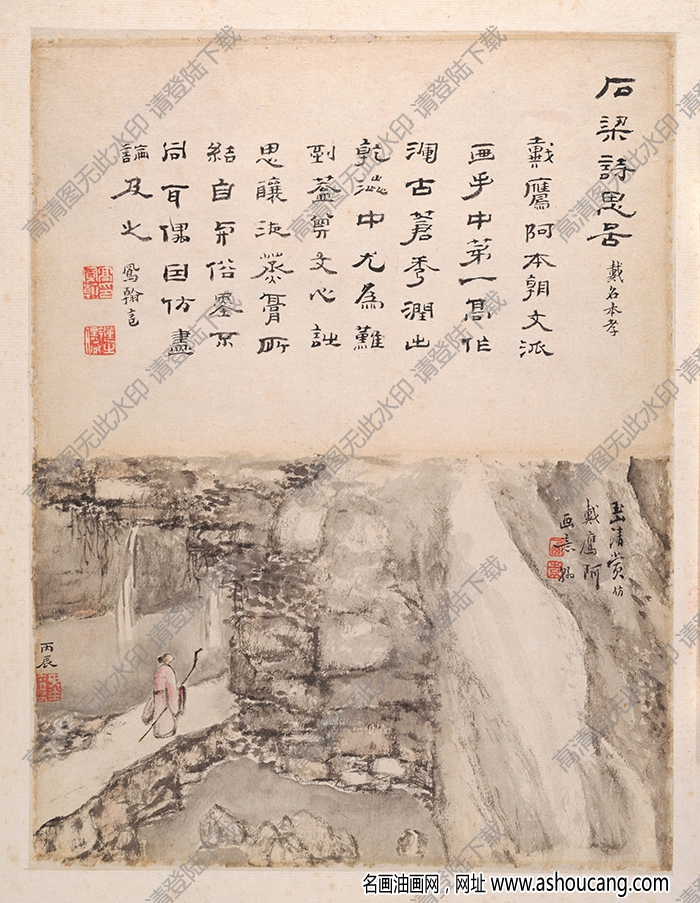 石梁詩思啚
戴名本孝
戴鷹阿本朝文派
画手中第一高作
古蒼秀潤出
乾澁中尤為難
到蓋文心
思釀液蒸膏所
結自俗塵不
同偶因仿畫
論及之
鳳翰言
清賞仿
戴鷹阿
画意
丙辰
高清图无此水印 请登陆下载
名画油画网，网址 www.ashoucang.com